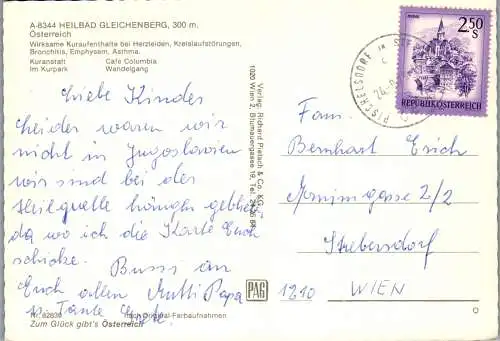 A-8344 HEILBAD GLEICHENBERG, 300 m,
Österreich
Wirksame Kuraufenthalte bei Herzleiden, Kreislaufstörungen,
Bronchitis, Emphysem, Asthma.
Kuranstalt Cafe Columbia
Im Kurpark Wandelgang
Liebe Kinder
Leider waren wir
nicht in Jugoslawien
wir sind bei der
Heilquelle hängen geblieb
da wo ich die Karte Euch
schicke.
Bussi an
Euch allen Mutti Papa
u. Tante
Nr. 82830 nach Original-Farbaufnahmen
Zum Glück gibt's Österreich
Verlag: Richard Pietsch & Co. KG.
1020 Wien 2, Blumauergasse 19, Tel.
PAG
PISCHELSDORF
2.50
S
REPUBLIK ÖSTERREICH
Fam.
Bernhart Erich
2/2
Strebersdorf
1210 WIEN